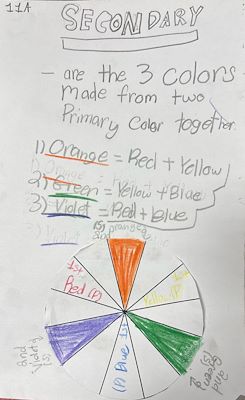 11A
SECONDARY
- are the 3 colors
made from two
Primary Color together.
1) Orange = Red + Yellow
2) Green = Yellow + Blue
3) Violet = Red + Blue
(S) orange
2nd
1st
Red (P)
1st
Yellow (P)
2nd
Violet
(S)
(P) Blue 1st
(S)
Green
2nd